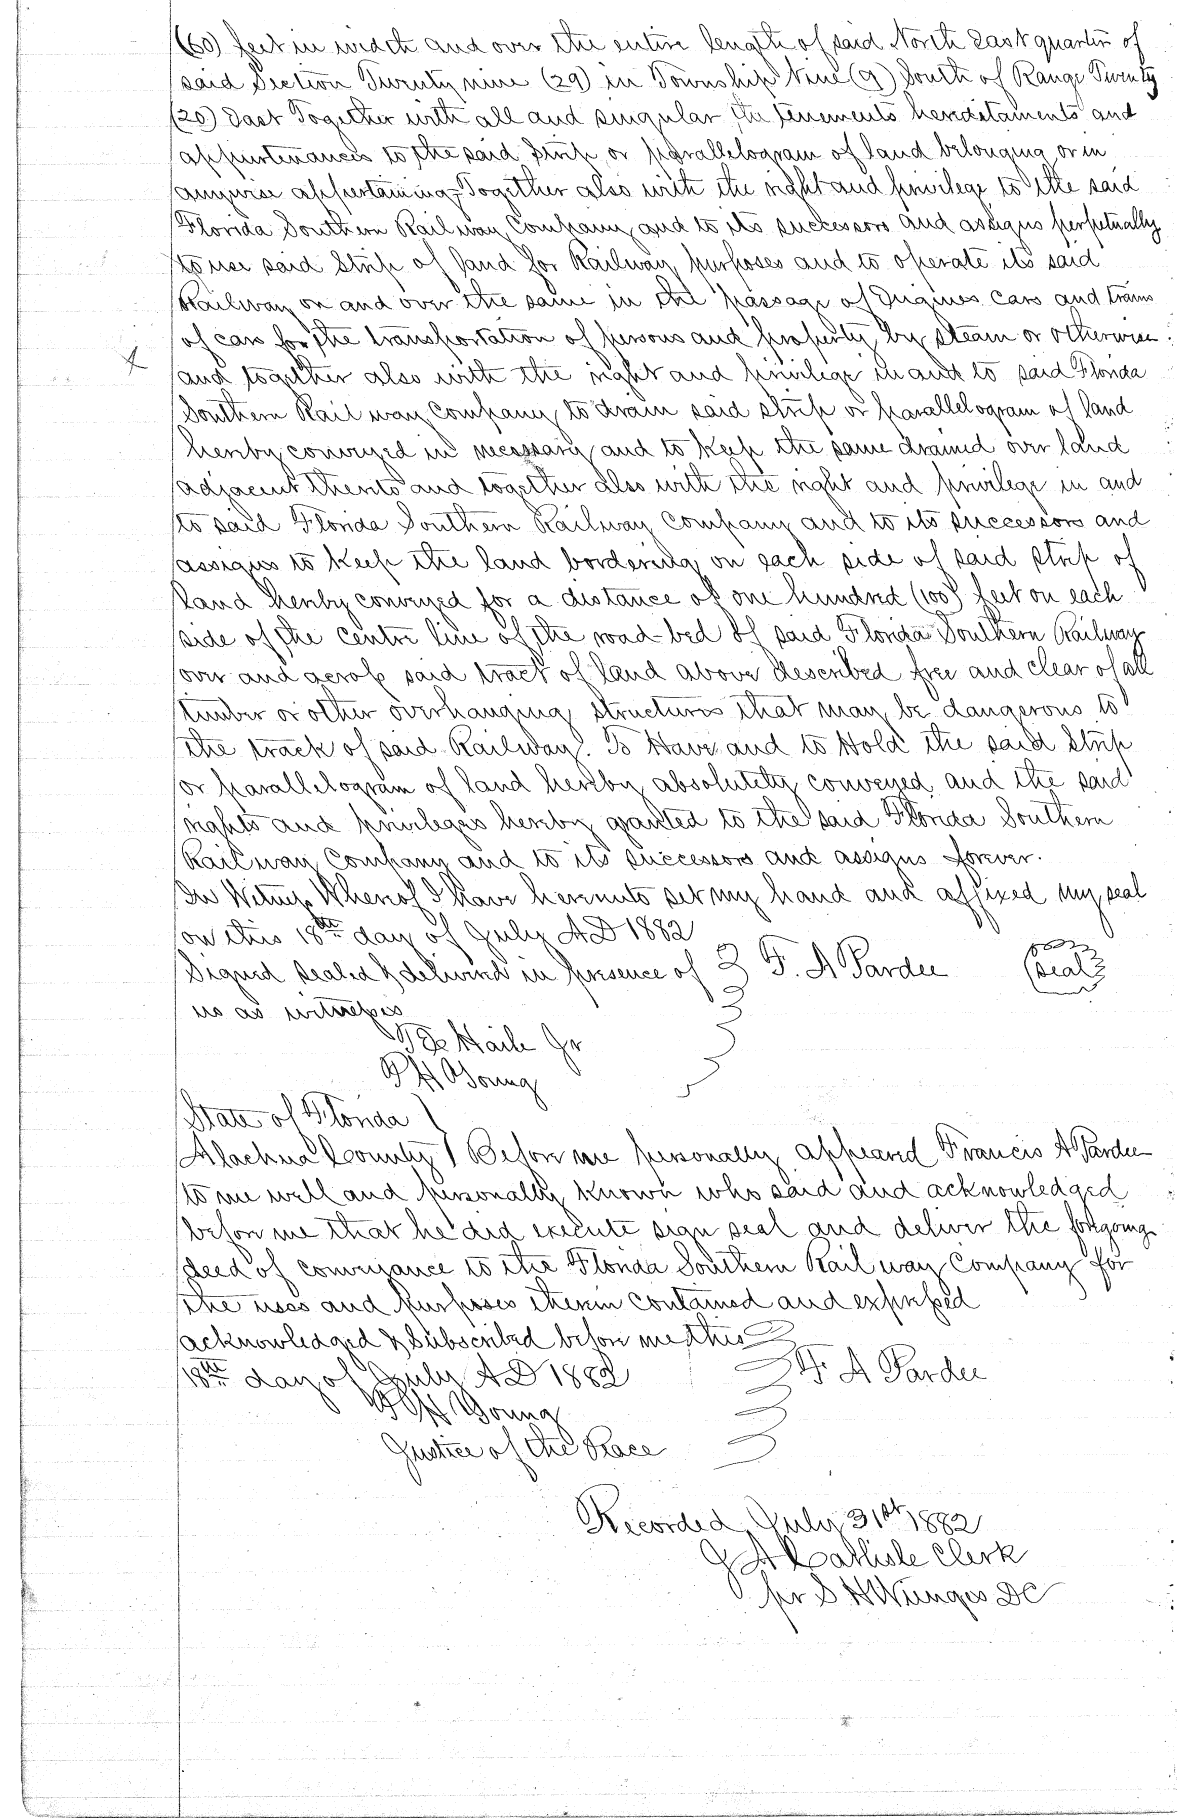 (60) feet in width and over the entire length of said North East quarter of
said Section Twenty nine (29) in Township Nine (9) South of Range Twenty
(20) East Together with all and singular the tenements hereditaments and
appurtenances to the said Strip or parallelogram of land belonging or in
anywise appertaining, Together also with the right and privilege to the said
Florida Southern Railway Company and to its successors and assigns perpetually
to use said Strip of land for Railway purposes and to operate its said
Railway on and over the same in the passage of Engines Cars and trains
of cars for the transportation of persons and property by steam or otherwise
and together also with the right and privilege in and to said Florida
Southern Railway Company to drain said strip or parallelogram of land
hereby conveyed in necessary and to keep the same drained over land
adjacent thereto and together also with the right and privilege in and
to said Florida Southern Railway Company and to its successors and
assigns to keep the land bordering on each side of said strip of
land hereby conveyed for a distance of one hundred (100) feet on each
side of the centre line of the road-bed of said Florida Southern Railway
over and across said tract of land above described free and clear of all
timber or other overhanging structures that may be dangerous to
the track of said Railway. To Have and to Hold the said Strip
or parallelogram of land hereby absolutely conveyed and the said
rights and privileges hereby granted to the said Florida Southern
Railway Company and to its successors and assigns forever.
In Witness Whereof I have hereunto set my hand and affixed my seal
on this 18th day of July AD 1882
Signed sealed & delivered in presence of F. A Pardee (seal)
us as witnesses
Haile Jr
H Young
State of Florida
Alachua County Before me personally appeared Francis A Pardee
to me well and personally known who said and acknowledged
before me that he did execute sign seal and deliver the forgoing
deed of conveyance to the Florida Southern Railway Company for
the uses and purposes therein contained and expressed
acknowledged & Subscribed before me this
18th day of July AD 1882 F. A Pardee
H Young
Justice of the Peace
Recorded July 31st 1882
J A Carlisle Clerk
pr S H Wienges DC